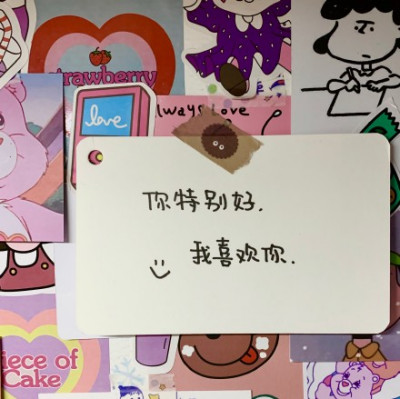 strawberry
love
always Love
你特别好.
我喜欢你.
Piece of
Cake